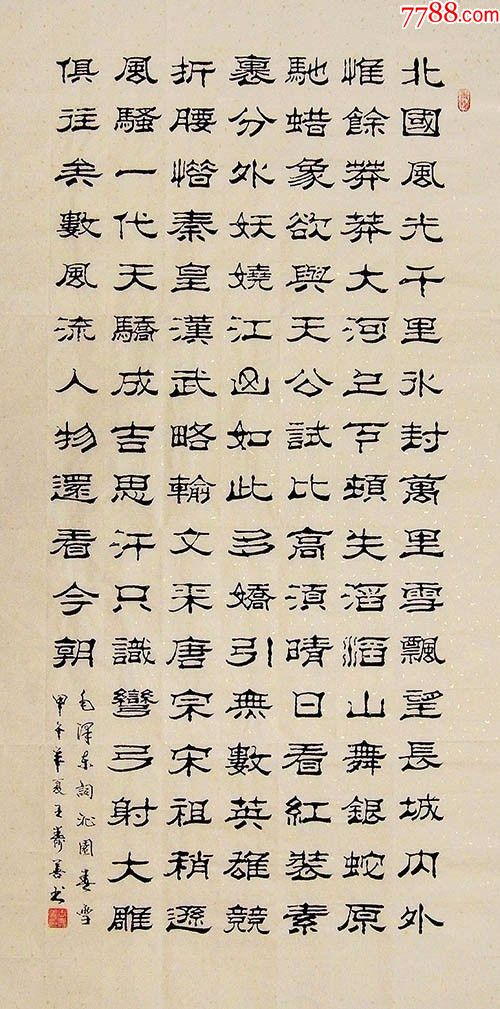 7788.com
北國風光千里冰封萬里雪飄望長城内外
惟餘莽莽大河上下頓失滔滔山舞銀蛇原
馳蜡象欲與天公試比高須晴日看紅裝素
裹分外妖嬈江山如此多嬌引無數英雄競
折腰惜秦皇漢武略輸文采唐宗宋祖稍遜
風騷一代天驕成吉思汗只識彎弓射大雕
俱往矣數風流人物還看今朝
毛澤東詞沁園春雪
甲午年夏王善书